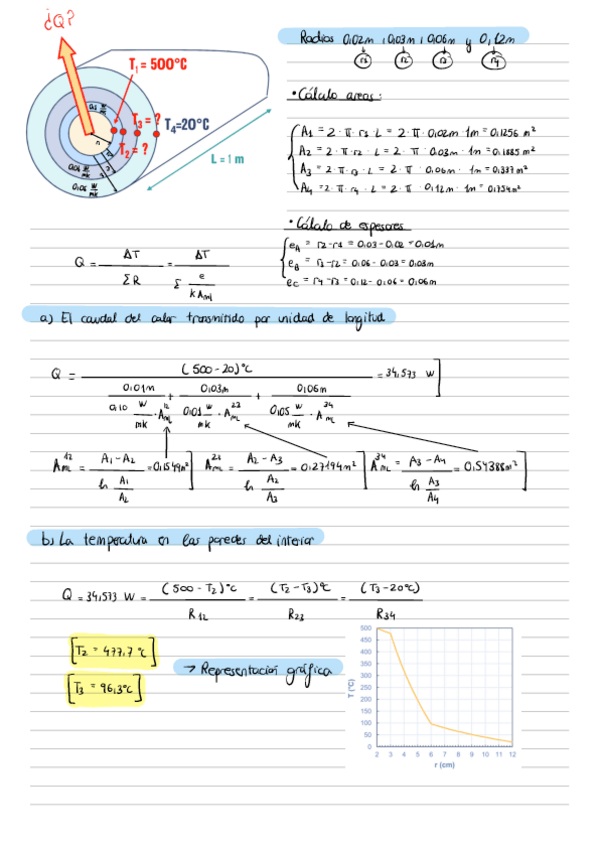 ¿Q?
Radios 0,02m, 0,03m, 0,06m y 0,12m
r1 r2 r3 r4
T1 = 500°C
T3 = ?
T4=20°C
T2 = ?
L = 1 m
• Cálculo areas:
A1 = 2·π·r1·L = 2·π·0,02m·1m=0,1256 m²
A2 = 2·π·r2·L = 2·π·0,03m·1m=0,1885 m²
A3 = 2·π·r3·L = 2·π·0,06m·1m=0,377 m²
A4 = 2·π·r4·L = 2·π·0,12m·1m=0,754 m²
• Cálculo de espesores
eA = r2-r1 = 0,03-0,02 = 0,01m
eB = r3-r2 = 0,06-0,03 = 0,03m
eC = r4-r3 = 0,12-0,06 = 0,06m
Q = ΔT / ΣR = ΔT / Σ e / k Aml
a) El caudal del calor transmitido por unidad de longitud
Q = (500-20)°C / 0,01m / 0,10 W/mk · Aml 12 + 0,03m / 0,01 W/mk · Aml 23 + 0,06m / 0,05 W/mk · Aml 34 = 34,573 W
Aml 12 = A1-A2 / ln A1/A2 = 0,1549m² Aml 23 = A2-A3 / ln A2/A3 = 0,27194m² Aml 34 = A3-A4 / ln A3/A4 = 0,54388m²
b) La temperatura en las paredes del interior
Q = 34,573 W = (500-T2)°C / R12 = (T2-T3)°C / R23 = (T3-20°C) / R34
T2 = 477,7 °C
T3 = 96,3°C
→ Representación gráfica
T (°C)
500
450
400
350
300
250
200
150
100
50
0
2 3 4 5 6 7 8 9 10 11 12
r (cm)